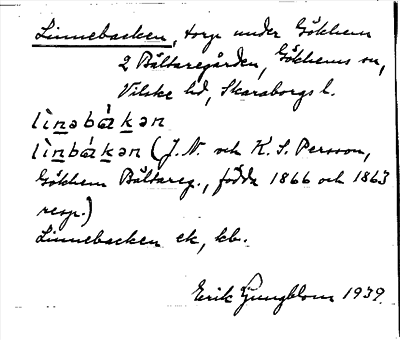 Linnebacken, torp under Gökhem
2 Bältaregården, Gökhems sn,
Vilske hd, Skaraborgs l.
lìnəbákən
lìnbákən (J. N. och K. S. Persson,
Gökhem Bältareg., födda 1866 och 1863
resp.)
Linnebacken ek, kb.
Erik Ljungblom 1939.